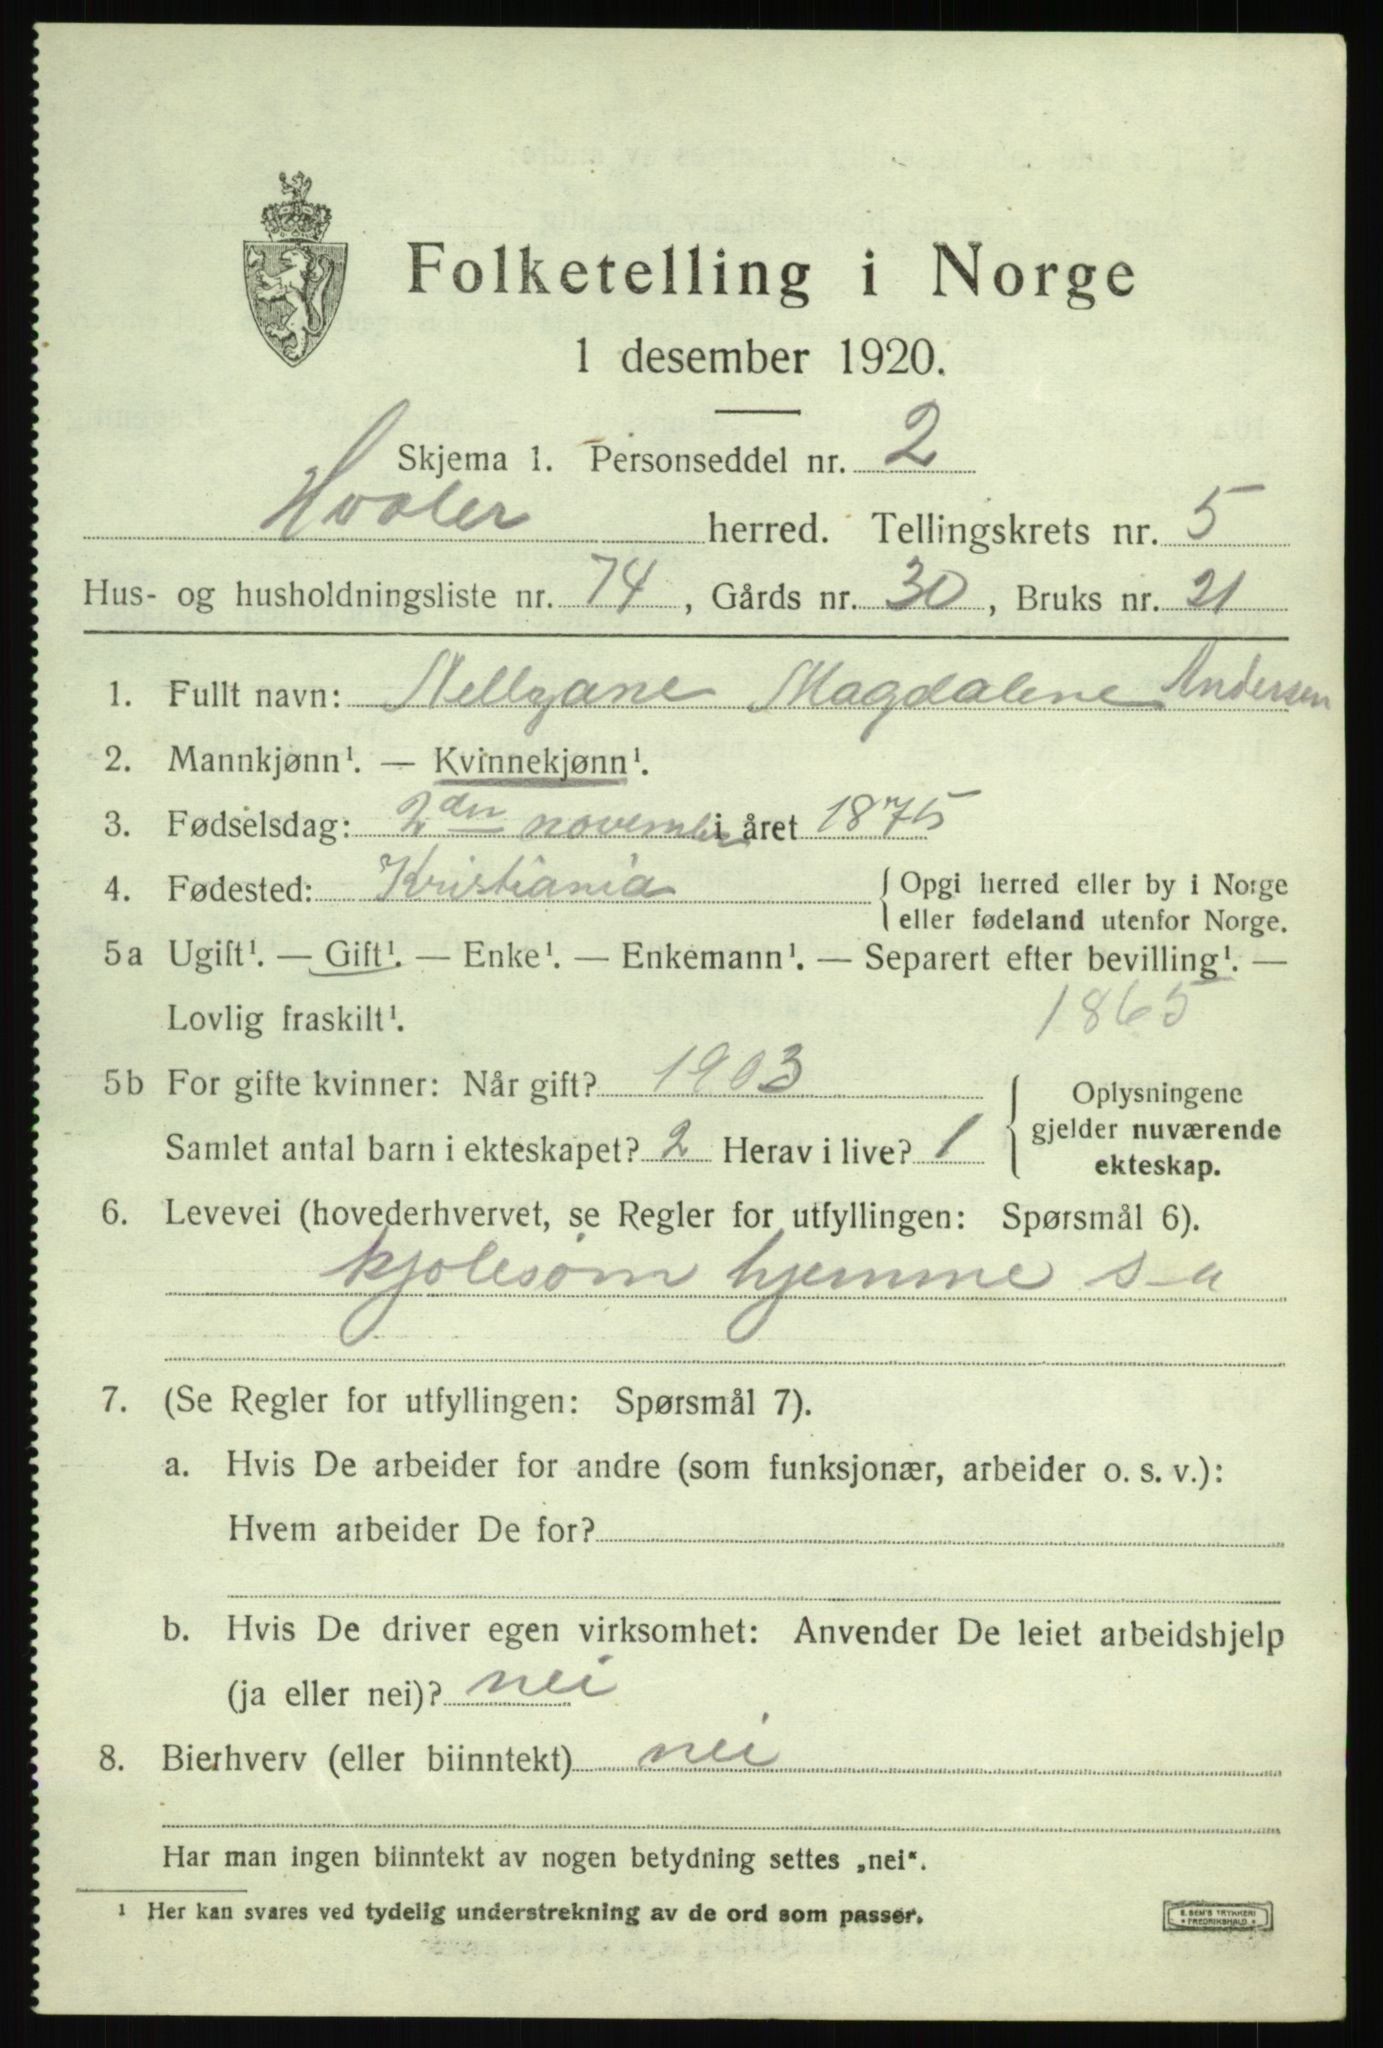 Folketelling i Norge
1 desember 1920.
Skjema 1. Personseddel nr. 2
Hvaler herred. Tellingskrets nr. 5
Hus- og husholdningsliste nr. 74, Gårds nr. 30, Bruks nr. 21
1. Fullt navn: Magdalene Andersen
2. Mannkjønn¹. — Kvinnekjønn¹.
3. Fødselsdag: 2den november i året 1875
4. Fødested: Kristiania {Opgi herred eller by i Norge
eller fødeland utenfor Norge.
5a Ugift¹. — Gift¹. — Enke¹. — Enkemann¹. — Separert efter bevilling¹. —
Lovlig fraskilt¹. 1865
5b For gifte kvinner: Når gift? 1903
Samlet antal barn i ekteskapet? 2 Herav i live? 1
{Oplysningene
gjelder nuværende
ekteskap.
6. Levevei (hovederhvervet, se Regler for utfyllingen: Spørsmål 6).
kjolesøm hjemme s-a
7. (Se Regler for utfyllingen: Spørsmål 7).
a. Hvis De arbeider for andre (som funksjonær, arbeider o. s. v.):
Hvem arbeider De for?
b. Hvis De driver egen virksomhet: Anvender De leiet arbeidshjelp
(ja eller nei)? nei
8. Bierhverv (eller biinntekt) nei
Har man ingen biinntekt av nogen betydning settes „nei“.
¹ Her kan svares ved tydelig understrekning av de ord som passer.
E. SEM'S TRYKKERI
FREDRIKSHALD